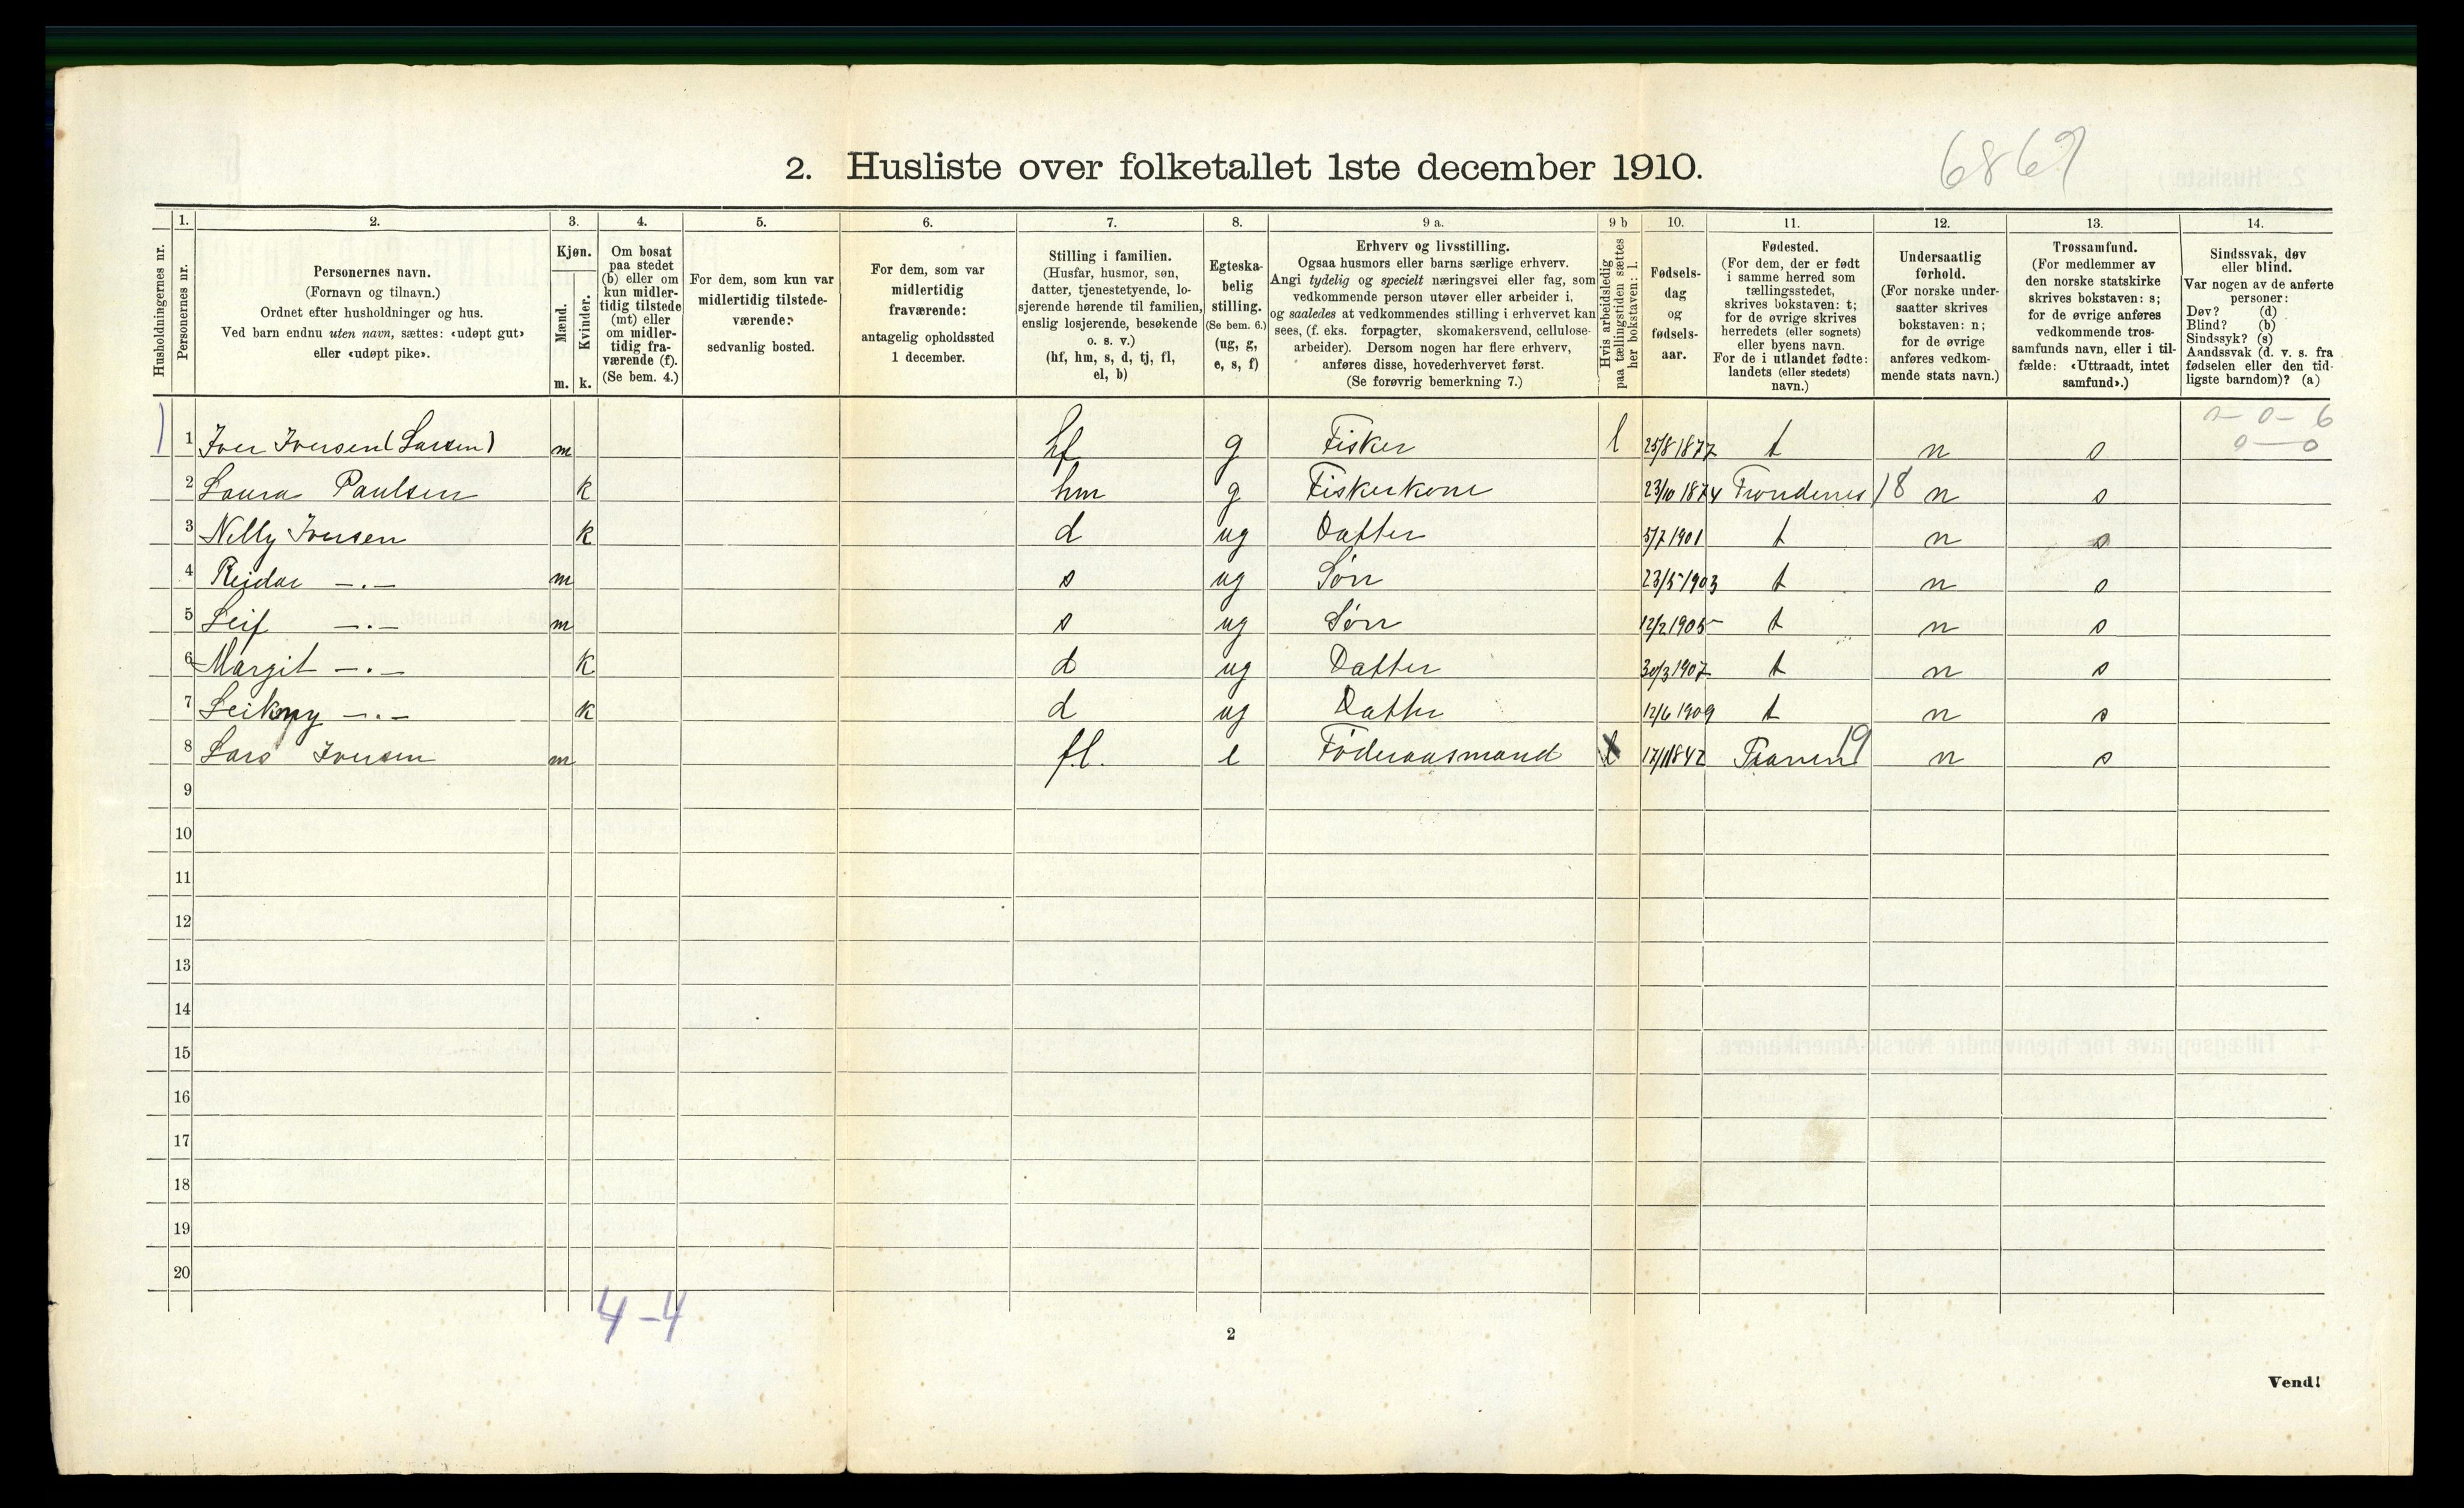 2. Husliste over folketallet 1ste december 1910.
6869
Husholdningernes nr.
1.
Personernes nr.
2.
Personernes navn.
(Fornavn og tilnavn.)
Ordnet efter husholdninger og hus.
Ved barn endnu uten navn, sættes: «udøpt gut»
eller «udøpt pike».
3.
Kjøn.
Mænd.
Kvinder.
m. k.
4.
Om bosat
paa stedet
(b) eller om
kun midler-
tidig tilstede
(mt) eller
om midler-
tidig fra-
værende (f).
(Se bem. 4.)
5.
For dem, som kun var
midlertidig tilstede-
værende:
sedvanlig bosted.
6.
For dem, som var
midlertidig
fraværende:
antagelig opholdssted
1 december.
7.
Stilling i familien.
(Husfar, husmor, søn,
datter, tjenestetyende, lo-
sjerende hørende til familien,
enslig losjerende, besøkende
o. s. v.)
(hf, hm, s, d, tj, fl,
el, b)
8.
Egteska-
belig
stilling.
(Se bem. 6.)
(ug, g,
e, s, f)
9 a.
Erhverv og livsstilling.
Ogsaa husmors eller barns særlige erhverv.
Angi tydelig og specielt næringsvei eller fag, som
vedkommende person utøver eller arbeider i,
og saaledes at vedkommendes stilling i erhvervet kan
sees, (f. eks. forpagter, skomakersvend, cellulose-
arbeider). Dersom nogen har flere erhverv,
anføres disse, hovederhvervet først.
(Se forøvrig bemerkning 7.)
9 b
Hvis arbeidsledig
paa tællingstiden sættes
her bokstaven: l.
10.
Fødsels-
dag
og
fødsels-
aar.
11.
Fødested.
(For dem, der er født
i samme herred som
tællingsstedet,
skrives bokstaven: t;
for de øvrige skrives
herredets (eller sognets)
eller byens navn.
For de i utlandet fødte:
landets (eller stedets)
navn.)
12.
Undersaatlig
forhold.
(For norske under-
saatter skrives
bokstaven: n;
for de øvrige
anføres vedkom-
mende stats navn.)
13.
Trossamfund.
(For medlemmer av
den norske statskirke
skrives bokstaven: s;
for de øvrige anføres
vedkommende tros-
samfunds navn, eller i til-
fælde: «Uttraadt, intet
samfund».)
14.
Sindssvak, døv
eller blind.
Var nogen av de anførte
personer:
Døv? (d)
Blind? (b)
Sindssyk? (s)
Aandssvak (d. v. s. fra
fødselen eller den tid-
ligste barndom)? (a)
0 — 0
1 1 Iver Iversen (Larsen) m hf g Fisker l 25/8 1877 t n s
2 Laura Paulsen k hm g Fiskerkone 23/10 1874 Trondenes 18 n s
3 Nelly Iversen k d ug Datter 5/7 1901 t n s
4 Reidar —.— m s ug Søn 23/5 1903 t n s
5 Leif —.— m s ug Søn 12/2 1905 t n s
6 Margit —.— k d ug Datter 30/3 1907 t n s
7 Leikny —.— k d ug Datter 12/6 1909 t n s
8 Lars Iversen m fl. e Føderaasmand 17/1 1842 Tranen 19 n s
9
10
11
12
13
14
15
16
17
18
19
20
4-4
2
Vend!